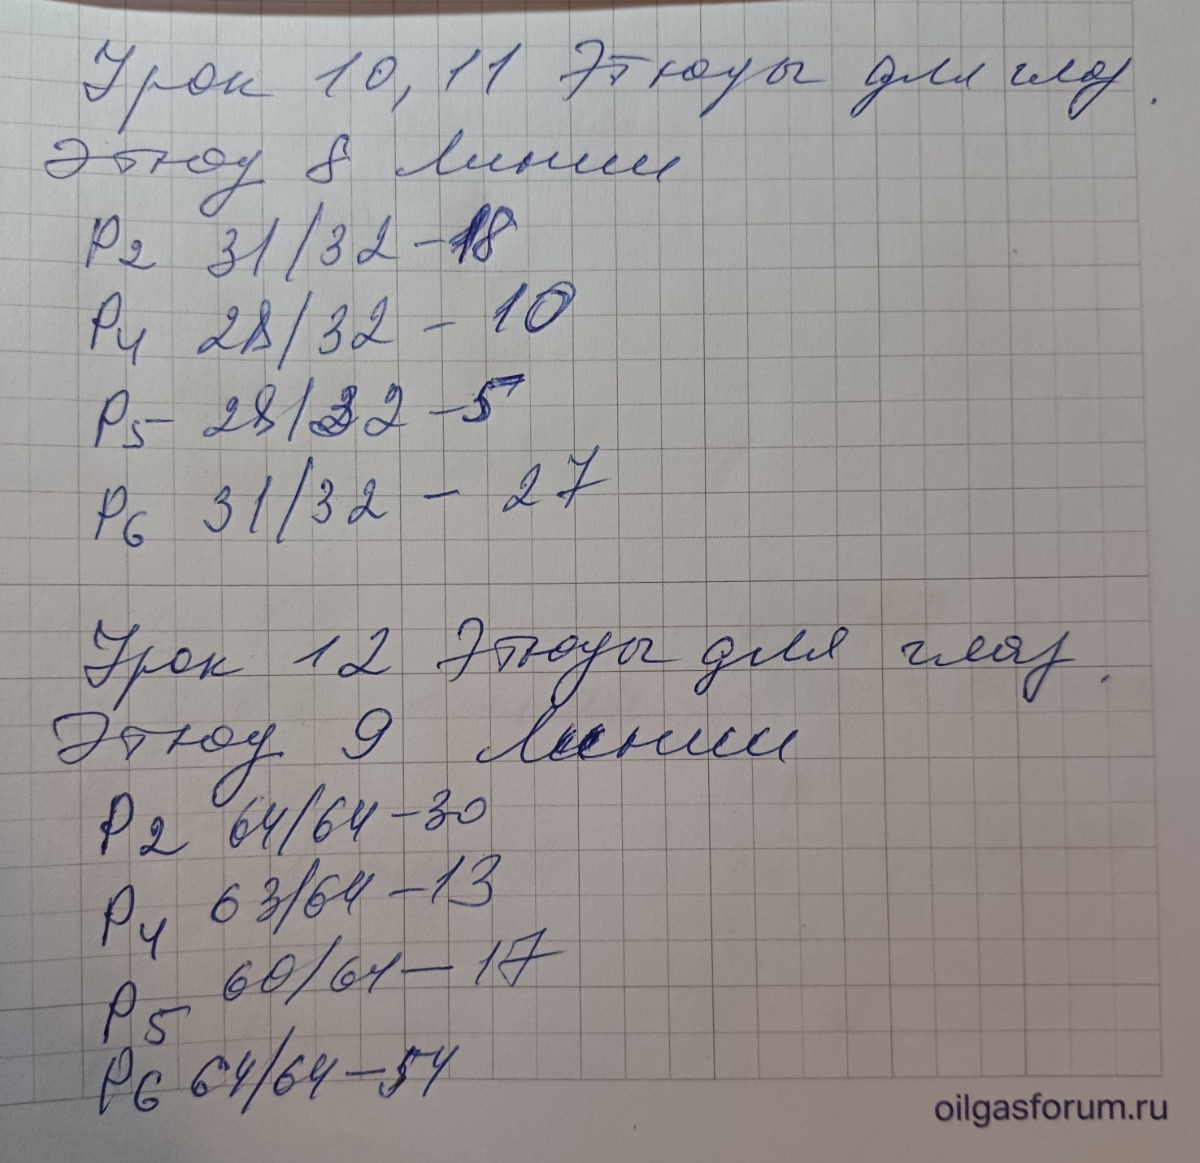 Урок 10, 11 Этюды для глаз.
Этюд 8 Линии
P2 31/32 - 18
P4 28/32 - 10
P5 - 28/32 - 5
P6 31/32 - 27
Урок 12 Этюды для глаз.
Этюд 9 Линии
P2 64/64 - 30
P4 63/64 - 13
P5 60/64 - 17
P6 64/64 - 54
oilgasforum.ru